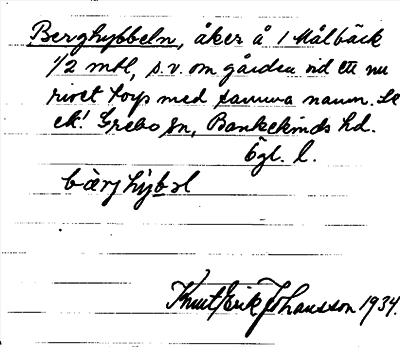 Berghybbeln, åker å 1 Målbäck
1/2 mtl, s.v. om gården vid ett nu
rivet torp med samma namn. Se
ek! Grebo sn, Bankekinds hd.
Ögl. l.
bàrjhỳbəl
Knut Erik Johansson 1934.